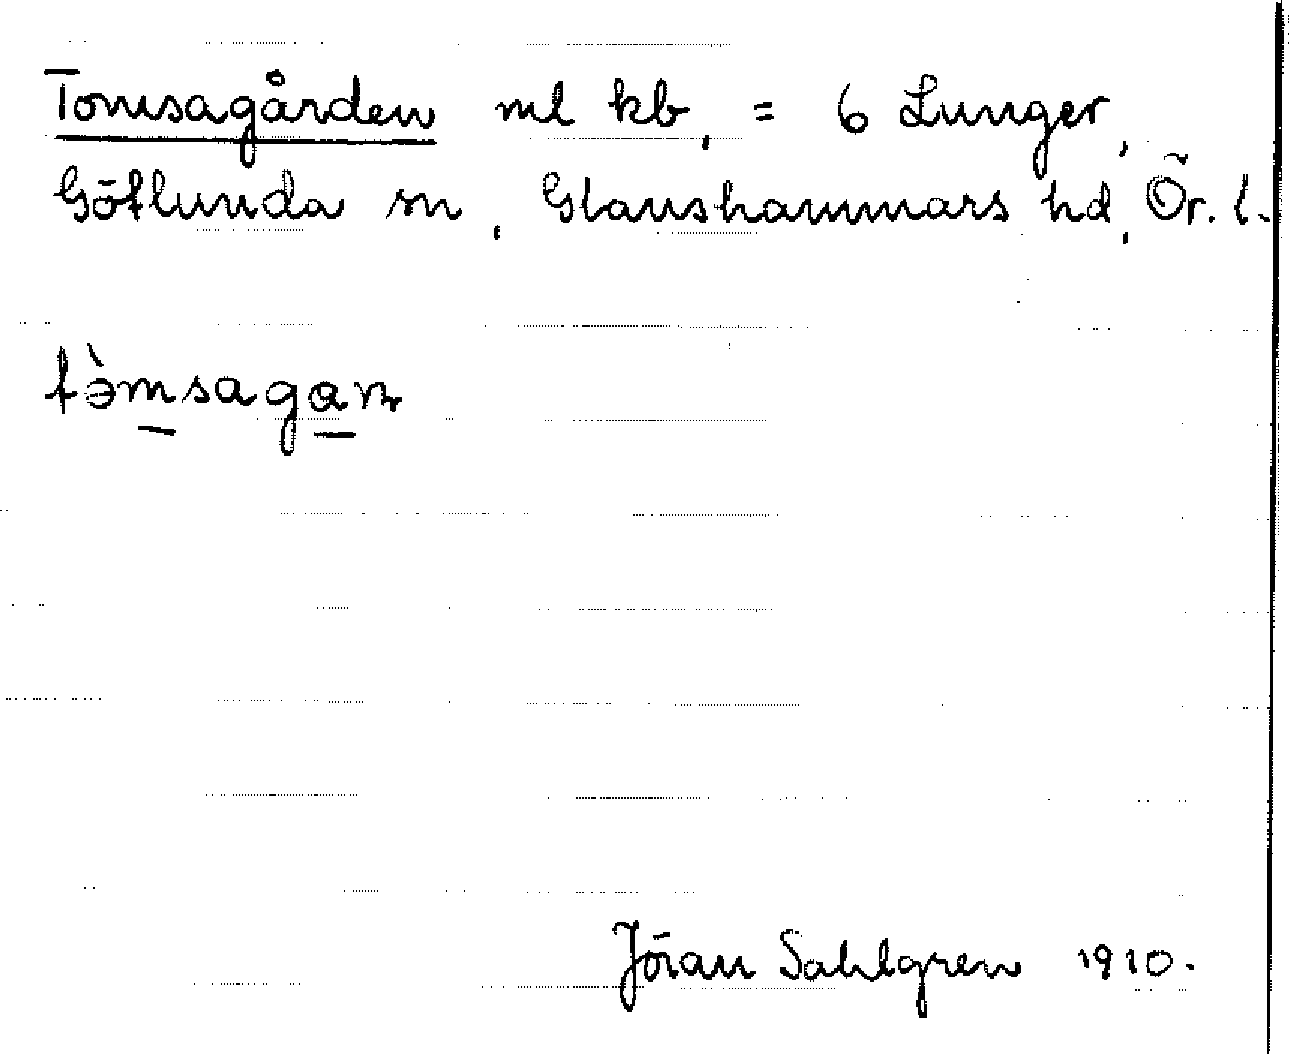 Tomsagården ml kb, = 6 Lunger,
Götlunda sn, Glanshammars hd, Ör. l.
tə̀msagaɳ
Jöran Sahlgren 1910.